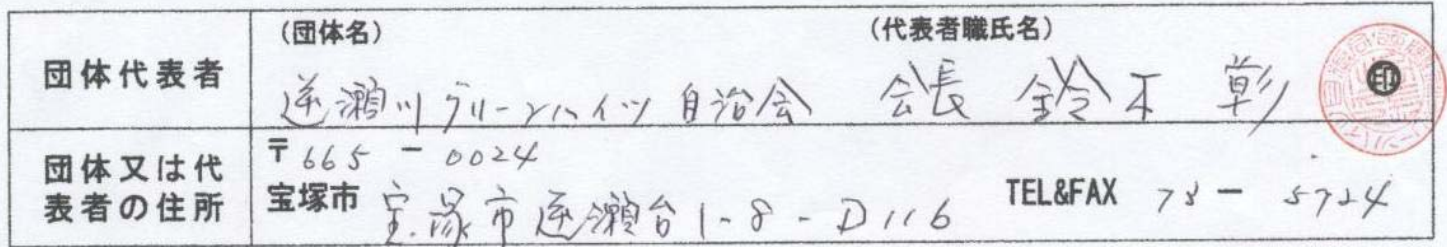 (団体名) (代表者職氏名)
団体代表者
逆瀬川グリーンハイツ自治会 会長 鈴木 彰 印
団体又は代表者の住所
〒665-0024
宝塚市 宝塚市逆瀬台1-8-D116 TEL&FAX 73-5724